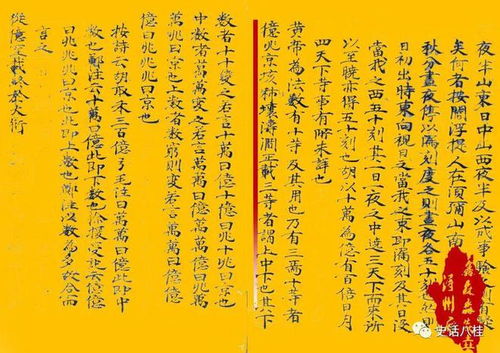 夜半山東日中山西夜半及以成事驗之則有疑
矣何者按閻浮提人在須彌山南
秋分晝夜停以漏刻度之則晝夜各五十刻也則
日初出時東向視日之當我之東即漏刻及其日沒
當我之西五十刻其一日一夜之中速三天下而來所
以至曉亦得五十刻也胡以十萬為億有百倍日月
四天下等事有所未詳也
黃帝為法數有十等及其用也乃有三焉十等者
億兆京垓秭壤溝澗正載三等者謂上中下也其下
數者十十變之若言十萬曰億十億曰兆十兆曰京也
中數者萬萬變之若言萬萬曰億萬萬億曰兆萬
萬兆曰京也上數者數窮則變若言萬萬曰億億
億曰兆兆兆曰京也
按詩云胡取禾三百億兮毛注曰萬萬曰億此即中
數也鄭注云十萬曰億此即下數也徐援受記云億億
曰兆兆兆曰此即上數也鄭注以數為多故合而
言之
從億至載終於大衍
史话八桂